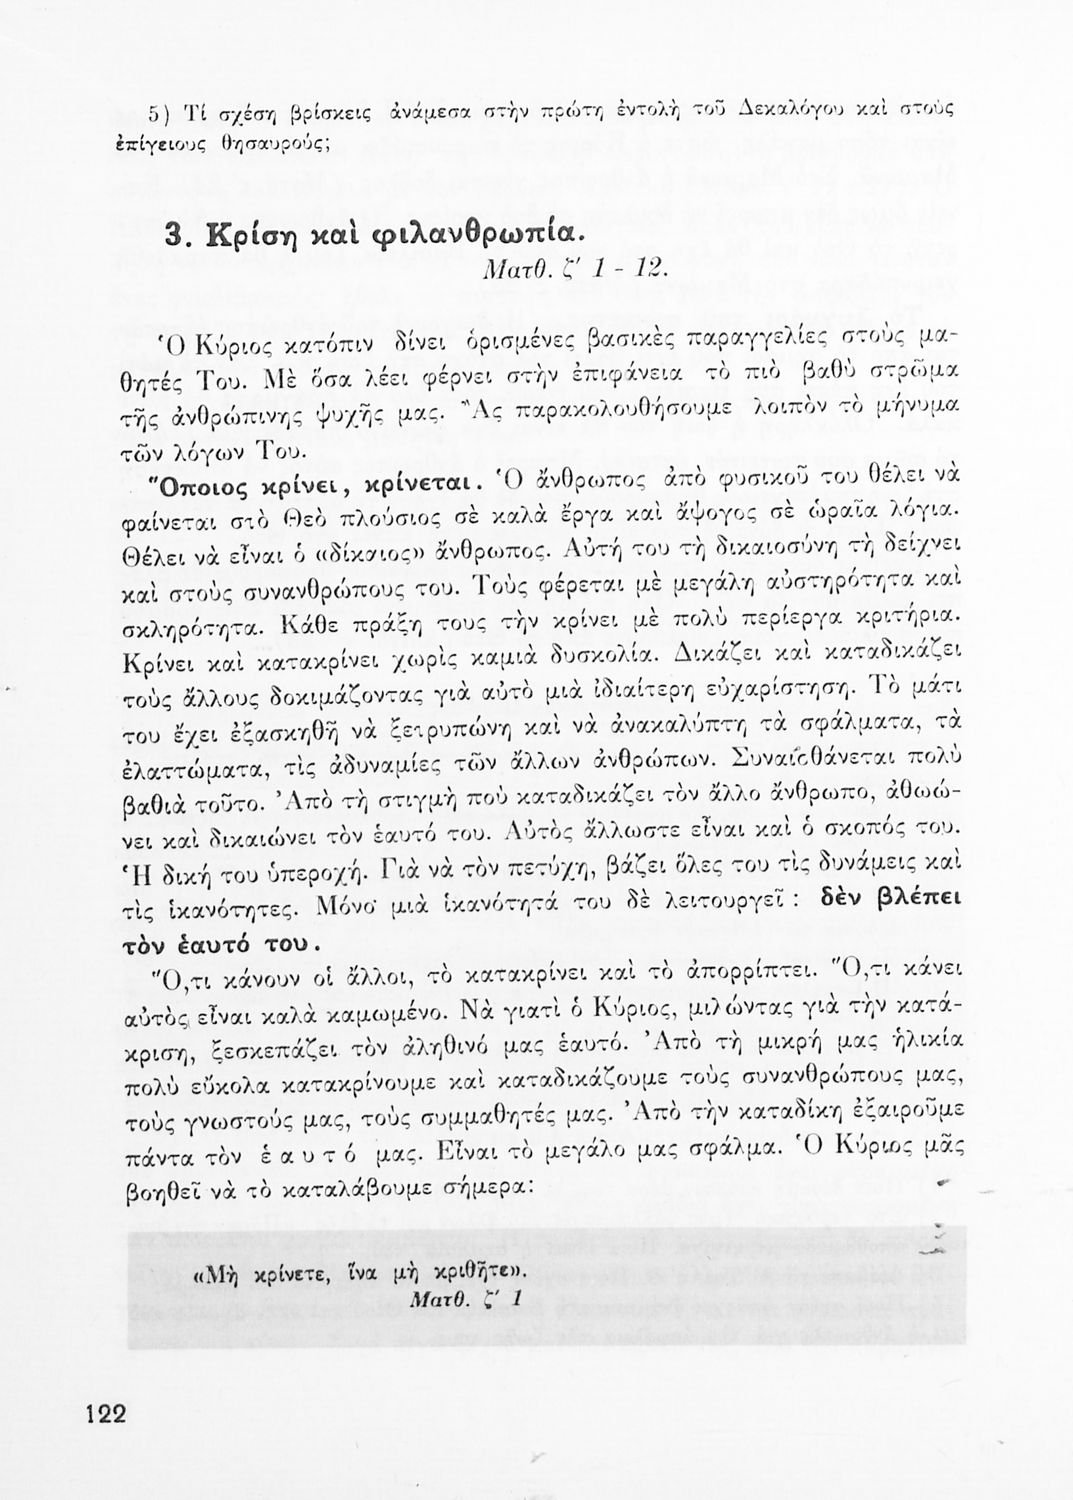 5) Τί σχέση βρίσκεις ἀνάμεσα στὴν πρώτη ἐντολὴ τοῦ Δεκαλόγου καὶ στοὺς
ἐπίγειους θησαυρούς;
3. Κρίση καὶ φιλανθρωπία.
Ματθ. ζ' 1 - 12.
Ὁ Κύριος κατόπιν δίνει ὁρισμένες βασικὲς παραγγελίες στοὺς μα-
θητές Του. Μὲ ὅσα λέει φέρνει στὴν ἐπιφάνεια τὸ πιὸ βαθὺ στρῶμα
τῆς ἀνθρώπινης ψυχῆς μας. Ἂς παρακολουθήσουμε λοιπὸν τὸ μήνυμα
τῶν λόγων Του.
Ὅποιος κρίνει, κρίνεται. Ὁ ἄνθρωπος ἀπὸ φυσικοῦ του θέλει νὰ
φαίνεται στὸ Θεὸ πλούσιος σὲ καλὰ ἔργα καὶ ἄψογος σὲ ὡραῖα λόγια.
Θέλει νὰ εἶναι ὁ «δίκαιος» ἄνθρωπος. Αὐτή του τὴ δικαιοσύνη τὴ δείχνει
καὶ στοὺς συνανθρώπους του. Τοὺς φέρεται μὲ μεγάλη αὐστηρότητα καὶ
σκληρότητα. Κάθε πράξη τους τὴν κρίνει μὲ πολὺ περίεργα κριτήρια.
Κρίνει καὶ κατακρίνει χωρὶς καμιὰ δυσκολία. Δικάζει καὶ καταδικάζει
τοὺς ἄλλους δοκιμάζοντας γιὰ αὐτὸ μιὰ ἰδιαίτερη εὐχαρίστηση. Τὸ μάτι
του ἔχει ἐξασκηθῆ νὰ ξετρυπώνη καὶ νὰ ἀνακαλύπτη τὰ σφάλματα, τὰ
ἐλαττώματα, τὶς ἀδυναμίες τῶν ἄλλων ἀνθρώπων. Συναισθάνεται πολὺ
βαθιὰ τοῦτο. Ἀπὸ τὴ στιγμὴ ποὺ καταδικάζει τὸν ἄλλο ἄνθρωπο, ἀθωώ-
νει καὶ δικαιώνει τὸν ἑαυτό του. Αὐτὸς ἄλλωστε εἶναι καὶ ὁ σκοπός του.
Ἡ δική του ὑπεροχή. Γιὰ νὰ τὸν πετύχη, βάζει ὅλες του τὶς δυνάμεις καὶ
τὶς ἱκανότητες. Μόνο μιὰ ἱκανότητά του δὲ λειτουργεῖ : δὲν βλέπει
τὸν ἑαυτό του.
Ὅ,τι κάνουν οἱ ἄλλοι, τὸ κατακρίνει καὶ τὸ ἀπορρίπτει. Ὅ,τι κάνει
αὐτὸς, εἶναι καλὰ καμωμένο. Νὰ γιατὶ ὁ Κύριος, μιλώντας γιὰ τὴν κατά-
κριση, ξεσκεπάζει τὸν ἀληθινό μας ἑαυτό. Ἀπὸ τὴ μικρή μας ἡλικία
πολὺ εὔκολα κατακρίνουμε καὶ καταδικάζουμε τοὺς συνανθρώπους μας,
τοὺς γνωστούς μας, τοὺς συμμαθητές μας. Ἀπὸ τὴν καταδίκη ἐξαιροῦμε
πάντα τὸν ἑαυτό μας. Εἶναι τὸ μεγάλο μας σφάλμα. Ὁ Κύριος μᾶς
βοηθεῖ νὰ τὸ καταλάβουμε σήμερα:
«Μὴ κρίνετε, ἵνα μὴ κριθῆτε».
Ματθ. ζ' 1
122